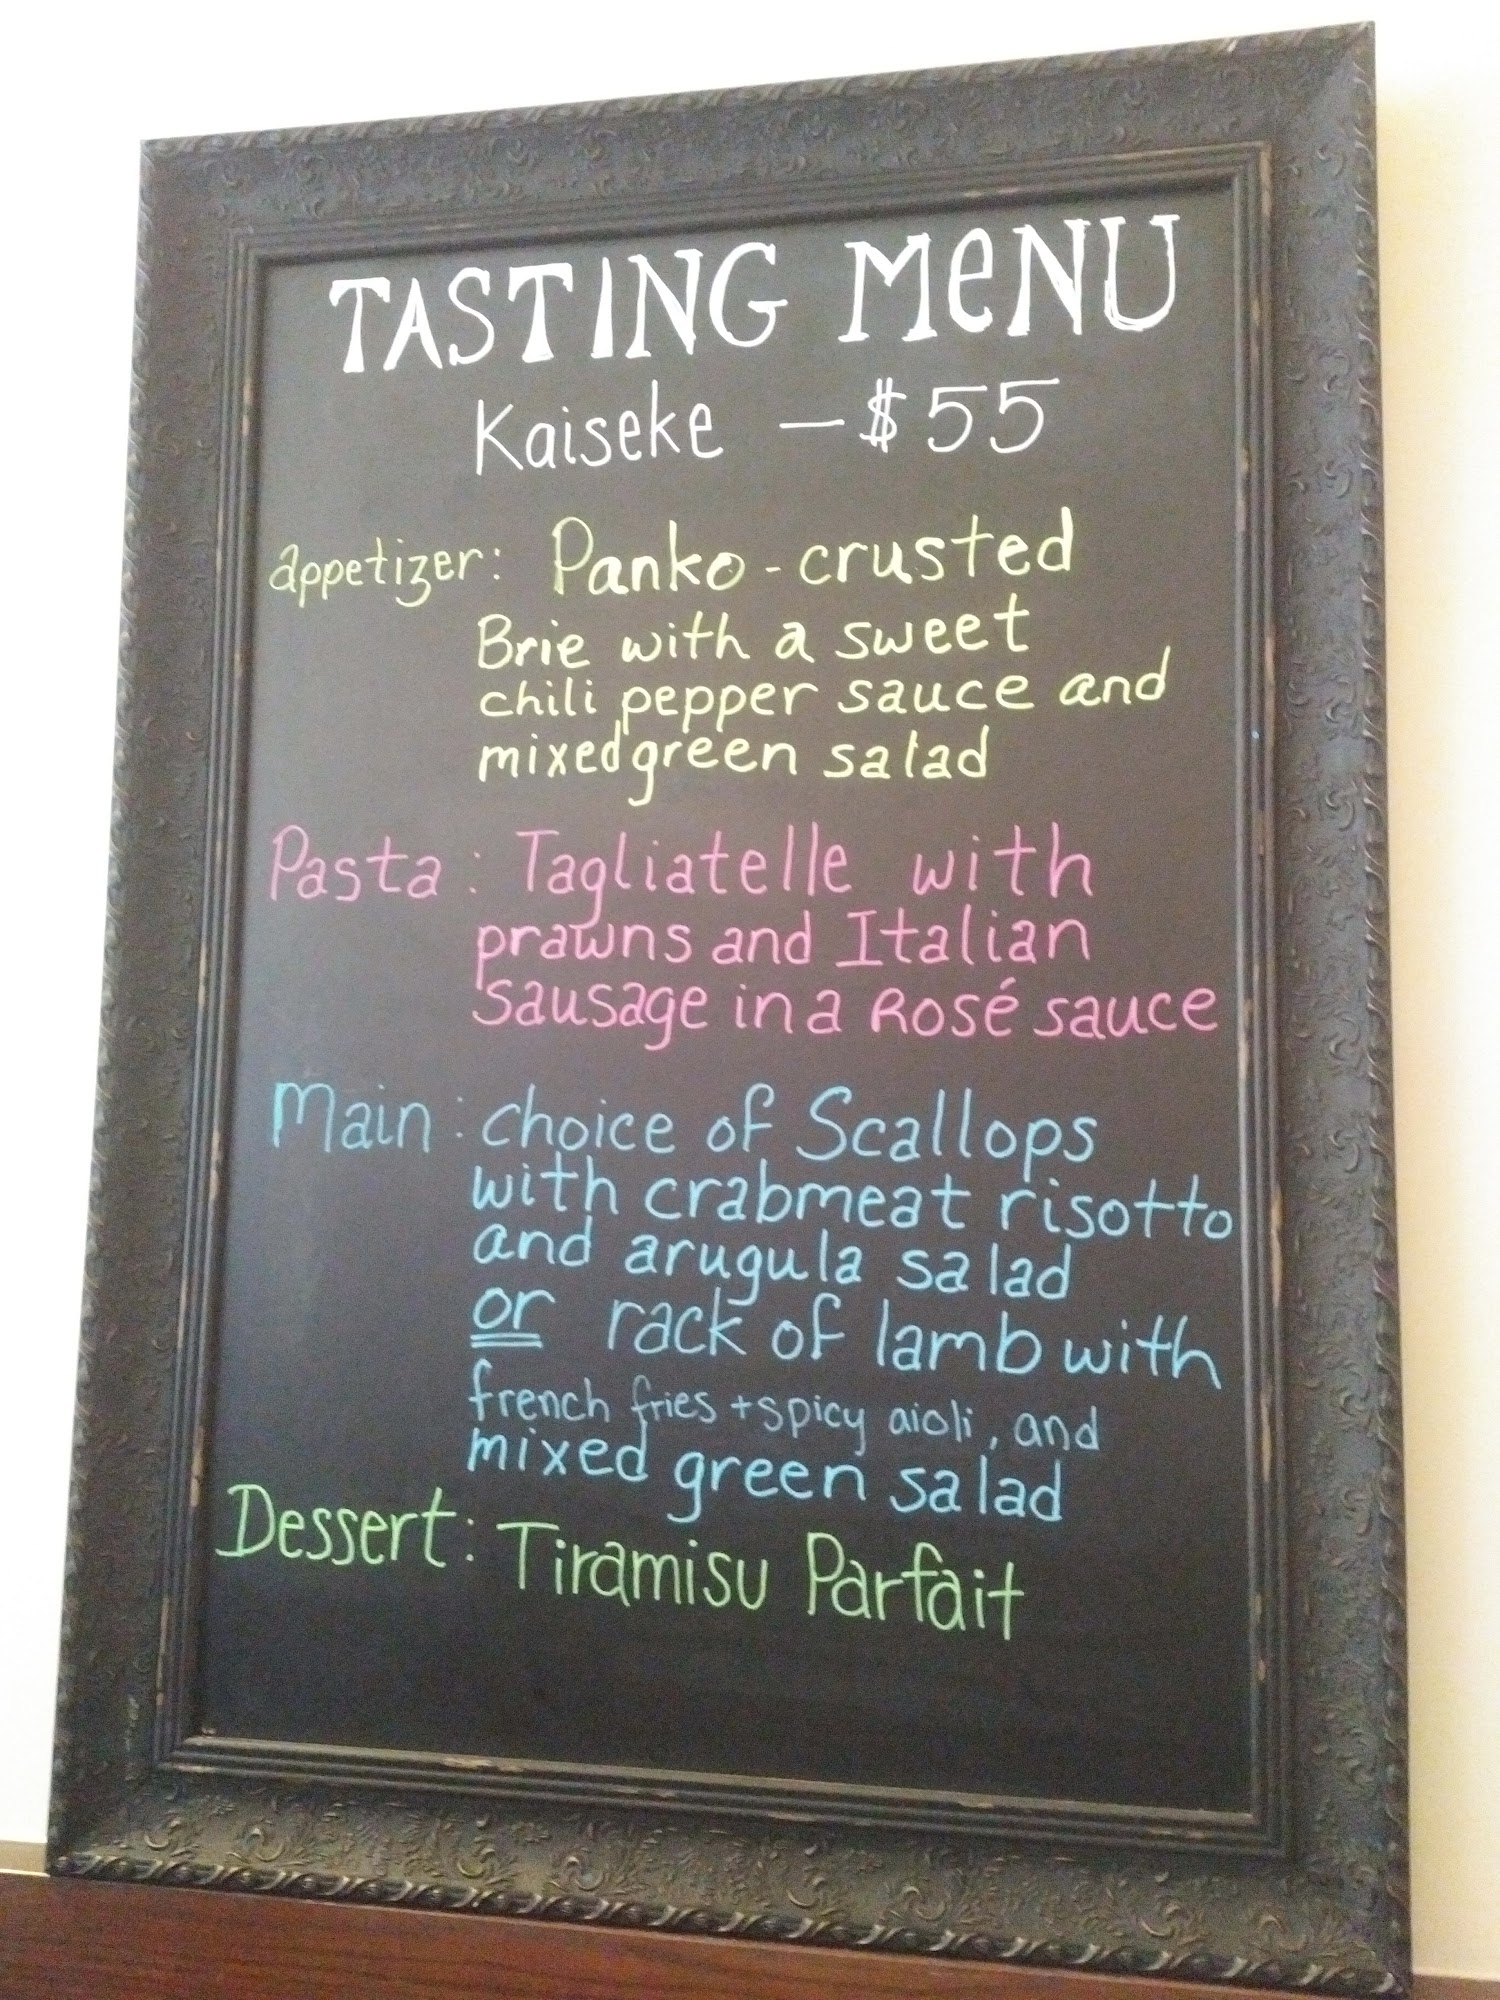 TASTING MeNU
Kaiseke — $55
appetizer: Panko-crusted
Brie with a sweet
chili pepper sauce and
mixed green salad
Pasta: Tagliatelle with
prawns and Italian
sausage in a Rosé sauce
Main: choice of Scallops
with crabmeat risotto
and arugula salad
or rack of lamb with
french fries + spicy aioli, and
mixed green salad
Dessert: Tiramisu Parfait